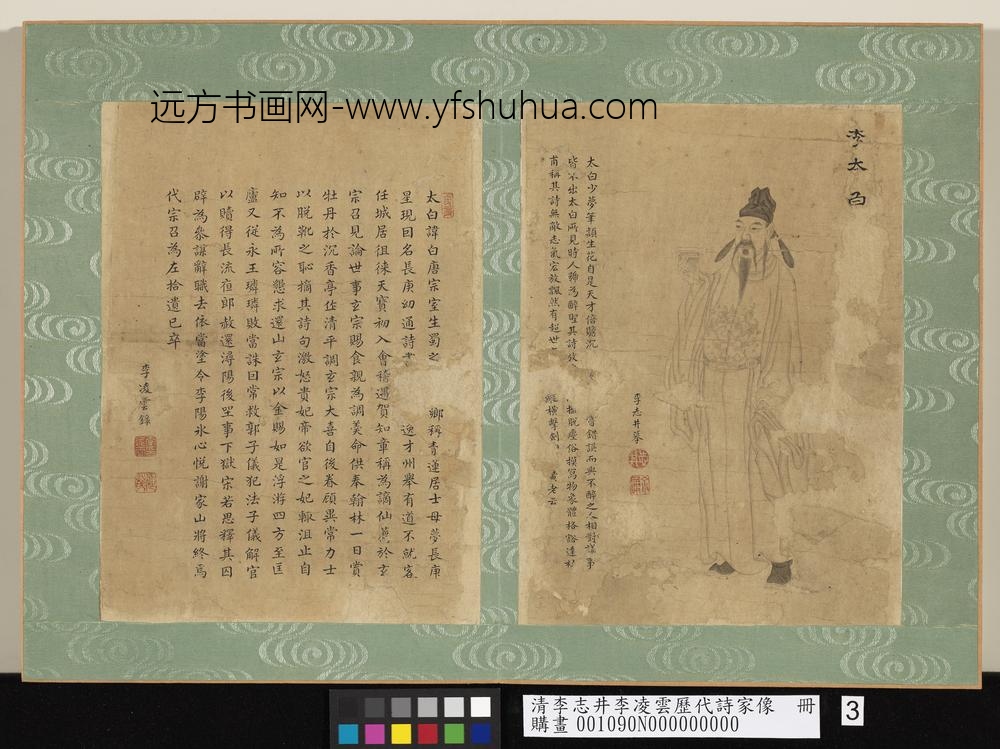 远方书画网-www.yfshuhua.com
李太白
太白少夢筆頭生花自是天才倍贍沉
嘗錯誤而與不醉之人相對議事
皆不出太白所見時人號為醉聖其詩放
擺脫塵俗模寫物象體格豁達杜
甫稱其詩無敵志氣宏放飄然有超世
縱橫擊劍
黃老云
李志井摹
太白諱白唐宗室生蜀之
鄉稱青蓮居士母夢長庚
星現因名長庚幼通詩書
逸才州舉有道不就客
任城居徂徠天寶初入會稽遇賀知章稱為謫仙薦於玄
宗召見論世事玄宗賜食親為調羹命供奉翰林一日賞
牡丹於沉香亭作清平調玄宗大喜自後眷顧異常力士
以脫靴之恥摘其詩句激怒貴妃帝欲官之妃輒沮止自
知不為所容懇求還山玄宗以金賜如是浮游四方至匡
廬又從永王璘璘敗當誅因常救郭子儀犯法子儀解官
以贖得長流夜郎赦還潯陽後坐事下獄宗若思釋其囚
辟為參謀辭職去依當塗令李陽冰心悅謝家山將終焉
代宗召為左拾遺已卒
李凌雲錄
清李志井李凌雲歷代詩家像 冊
購畫 001090N000000000
3